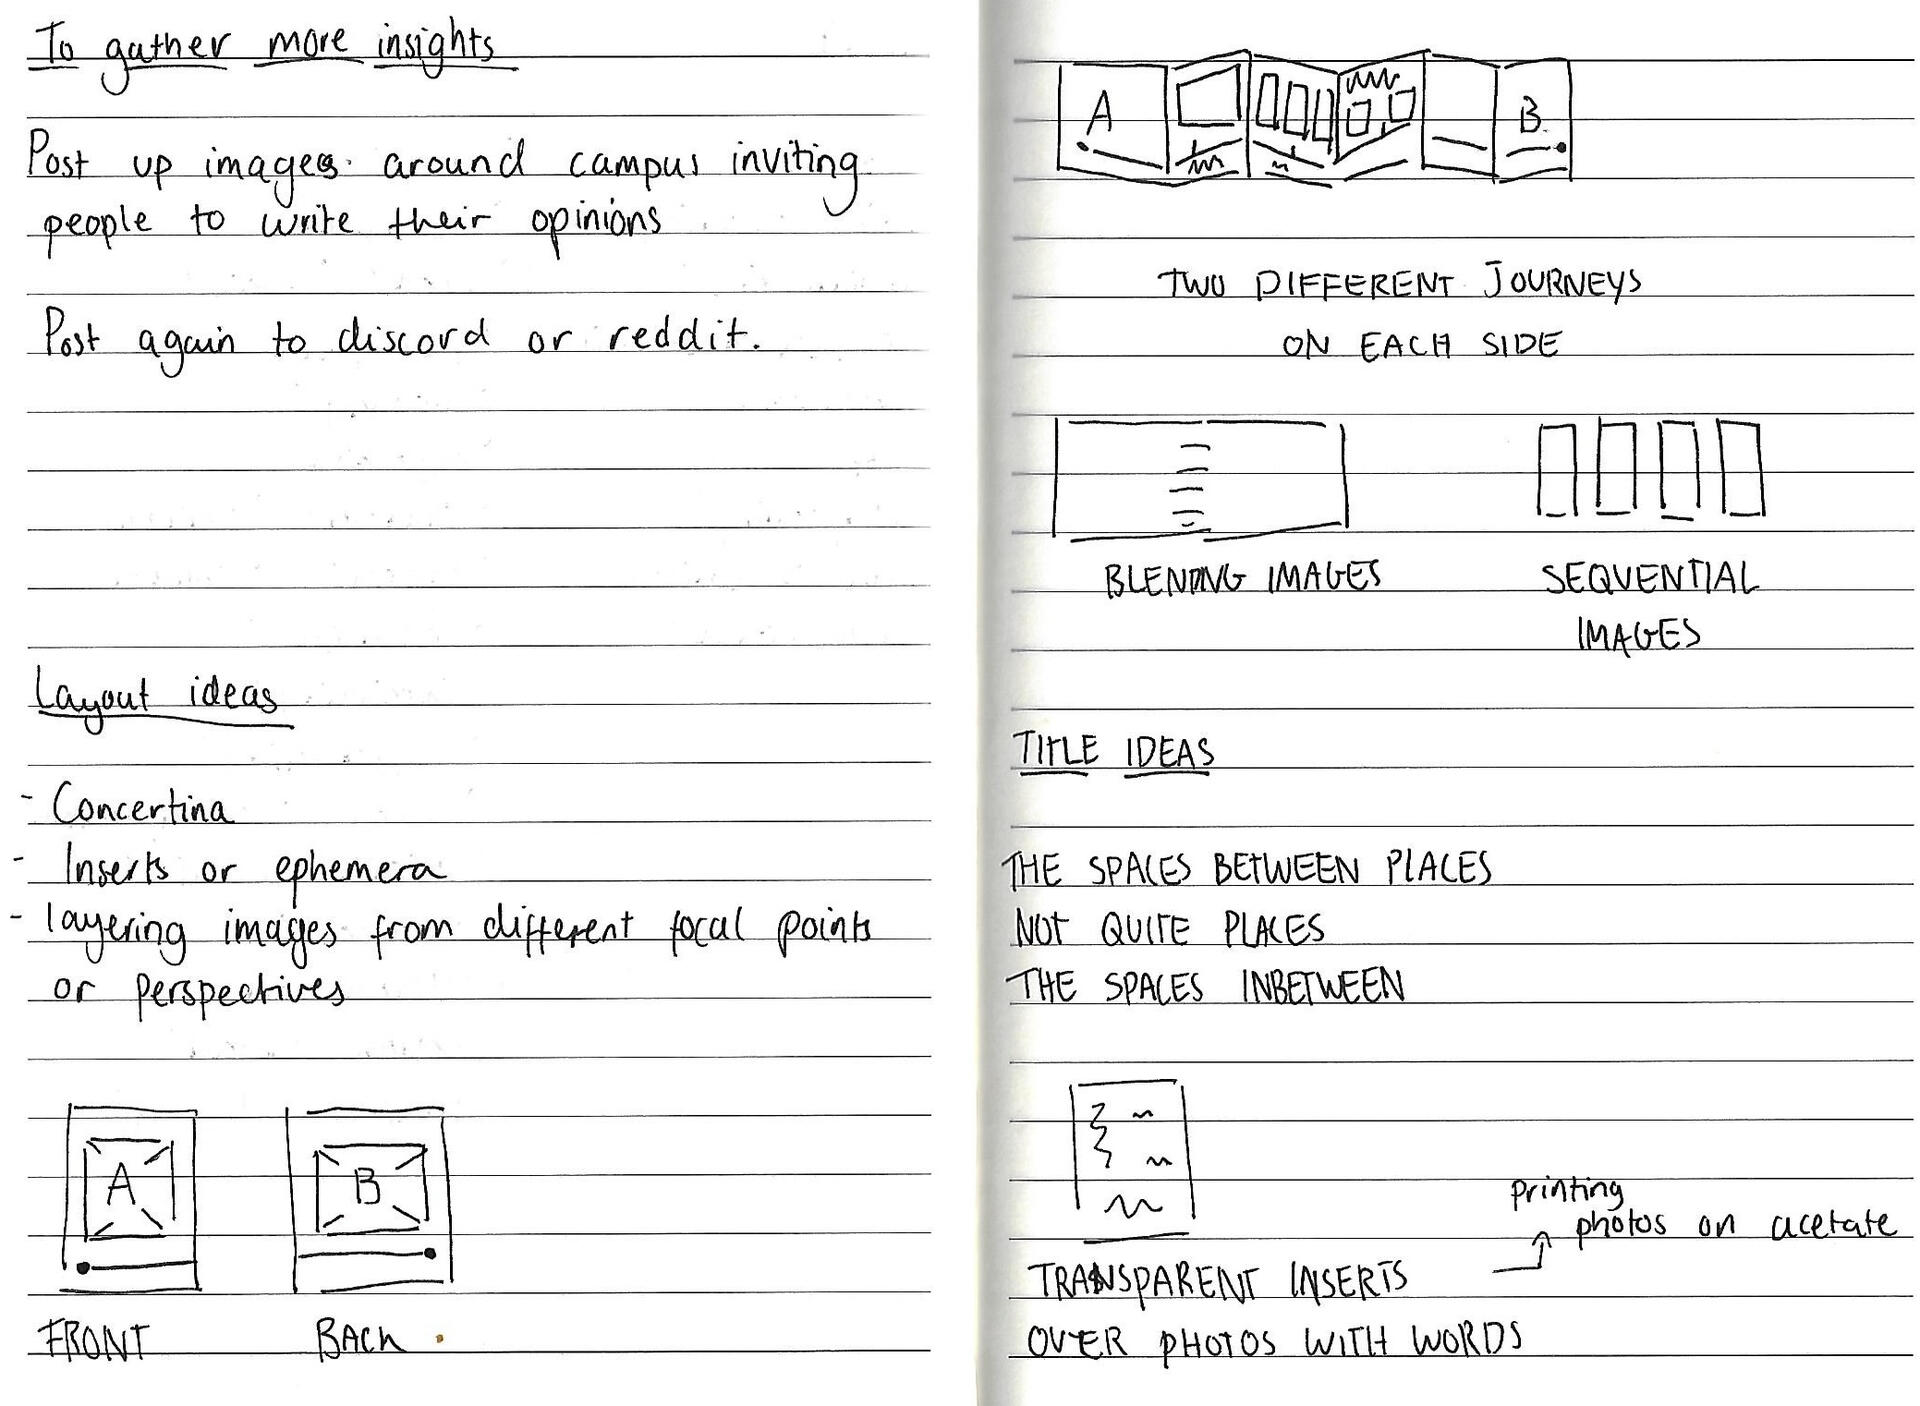 To gather more insights
Post up images around campus inviting
people to write their opinions
Post again to discord or reddit.
Layout ideas
- Concertina
- Inserts or ephemera
- layering images from different focal points
or perspectives
A
B
FRONT
BACK
A
B
TWO DIFFERENT JOURNEYS
ON EACH SIDE
BLENDING IMAGES
SEQUENTIAL
IMAGES
TITLE IDEAS
THE SPACES BETWEEN PLACES
NOT QUITE PLACES
THE SPACES INBETWEEN
printing
photos on acetate
TRANSPARENT INSERTS
OVER PHOTOS WITH WORDS